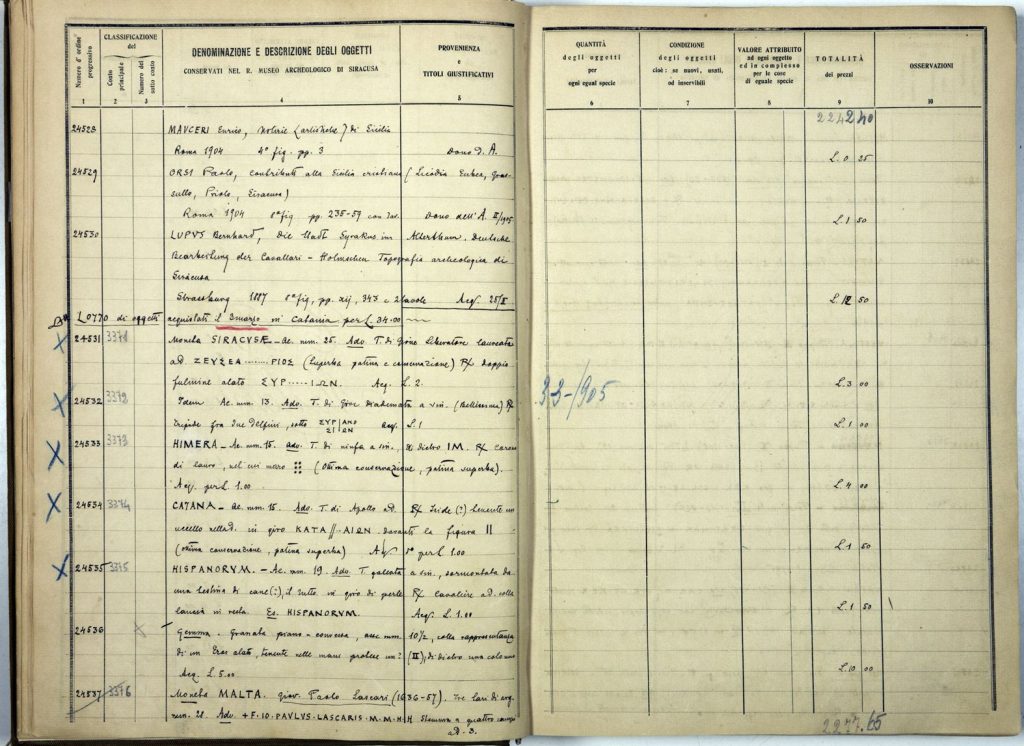 Numero d'ordine progressivo
CLASSIFICAZIONE del
Conto principale
Numero del sotto conto
DENOMINAZIONE E DESCRIZIONE DEGLI OGGETTI
CONSERVATI NEL R. MUSEO ARCHEOLOGICO DI SIRACUSA
PROVENIENZA
e
TITOLI GIUSTIFICATIVI
1 2 3 4 5
24528 MAUCERI Enrico, Notizie (artistiche) di Sicilia
Roma 1904 4° fig. pp. 3 Dono d. A.
24529 ORSI Paolo, Contributi alla Sicilia cristiana (Licodia Eubea,
Priolo, Siracusa)
Roma 1904 8° fig. pp. 235-59 con tav. Dono dell'A. II/905
24530 LUPUS Bernhard, Die Stadt Syrakus im Alterthum. Deutsche
Bearbeitung der Cavallari - Holmschen Topografia archeologica di
Siracusa
Strassburg 1887 8° fig, pp. xij, 343 e 2 tavole Acq. 25/II
LOTTO di oggetti acquistati il 3 marzo in Catania per L. 34.00
X 24531 3371 Moneta SIRACVSÆ - Ae. mm. 25. Adv. T. di Giove Liberatore laureata
ad. ΖΕΥΣΕΛ........ΡΙΟΣ (Superba patina e conservazione) R/ Doppio
fulmine alato ΣΥΡ.....ΙΩΝ. Acq. L. 2.
X 24532 3372 Idem Ae. mm. 13. Adv. T. di Giove diademata a sin. (Bellissima) R/
tripode fra due delfini, sotto ΣΥΡ|ΑΚΟ ΣΙ|ΩΝ Acq. L. 1
X 24533 3373 HIMERA - Ae. mm. 15. Adv. T. di ninfa a sin., dietro IM. R/ Corona
di lauro, nel cui mezzo (Ottima conservazione, patina superba).
Acq. per L. 1.00
X 24534 3374 CATANA - Ae. mm. 15. Adv. T. di Apollo ad. R/ Iride (?) tenente un
uccello nella d. in giro ΚΑΤΑ // ΑΙΩΝ. Davanti la figura II
(ottima conservazione, patina superba) Acq. per L. 1.00
X 24535 3375 HISPANORVM. - Ae. mm. 19. Adv. T. galeata a sin., sormontata da
una testina di cane (?), il tutto in giro di perle R/ Cavaliere ad. colla
lancia in resta. Es. HISPANORVM. Acq. L. 1.00
24536 X Gemma. Granata piano-convessa, asse mm. 10 1/2, colla rappresentanza
di un Eros alato, tenente nelle mani protese un ? (II), di dietro una colonna
Acq. L. 5.00
24537 3376 Moneta MALTA. Giov. Paolo Lascari (1636-57). Tre tari di arg.
mm. 28. Adv. +F·IO·PAVLVS·LASCARIS·M·M·H·H Stemma a quattro campi
ad. 3.
QUANTITÀ
degli oggetti
per
ogni egual specie
CONDIZIONE
degli oggetti
cioè: se nuovi, usati,
od inservibili
VALORE ATTRIBUITO
ad ogni oggetto
ed in complesso
per le cose
di eguale specie
TOTALITÀ
dei prezzi
OSSERVAZIONI
6 7 8 9 10
224240
L. 0 25
L. 1 50
L. 12 50
L. 3 00
33-/905
L. 1 00
L. 4 00
L. 1 50
L. 1 50
L. 10 00
2277.65